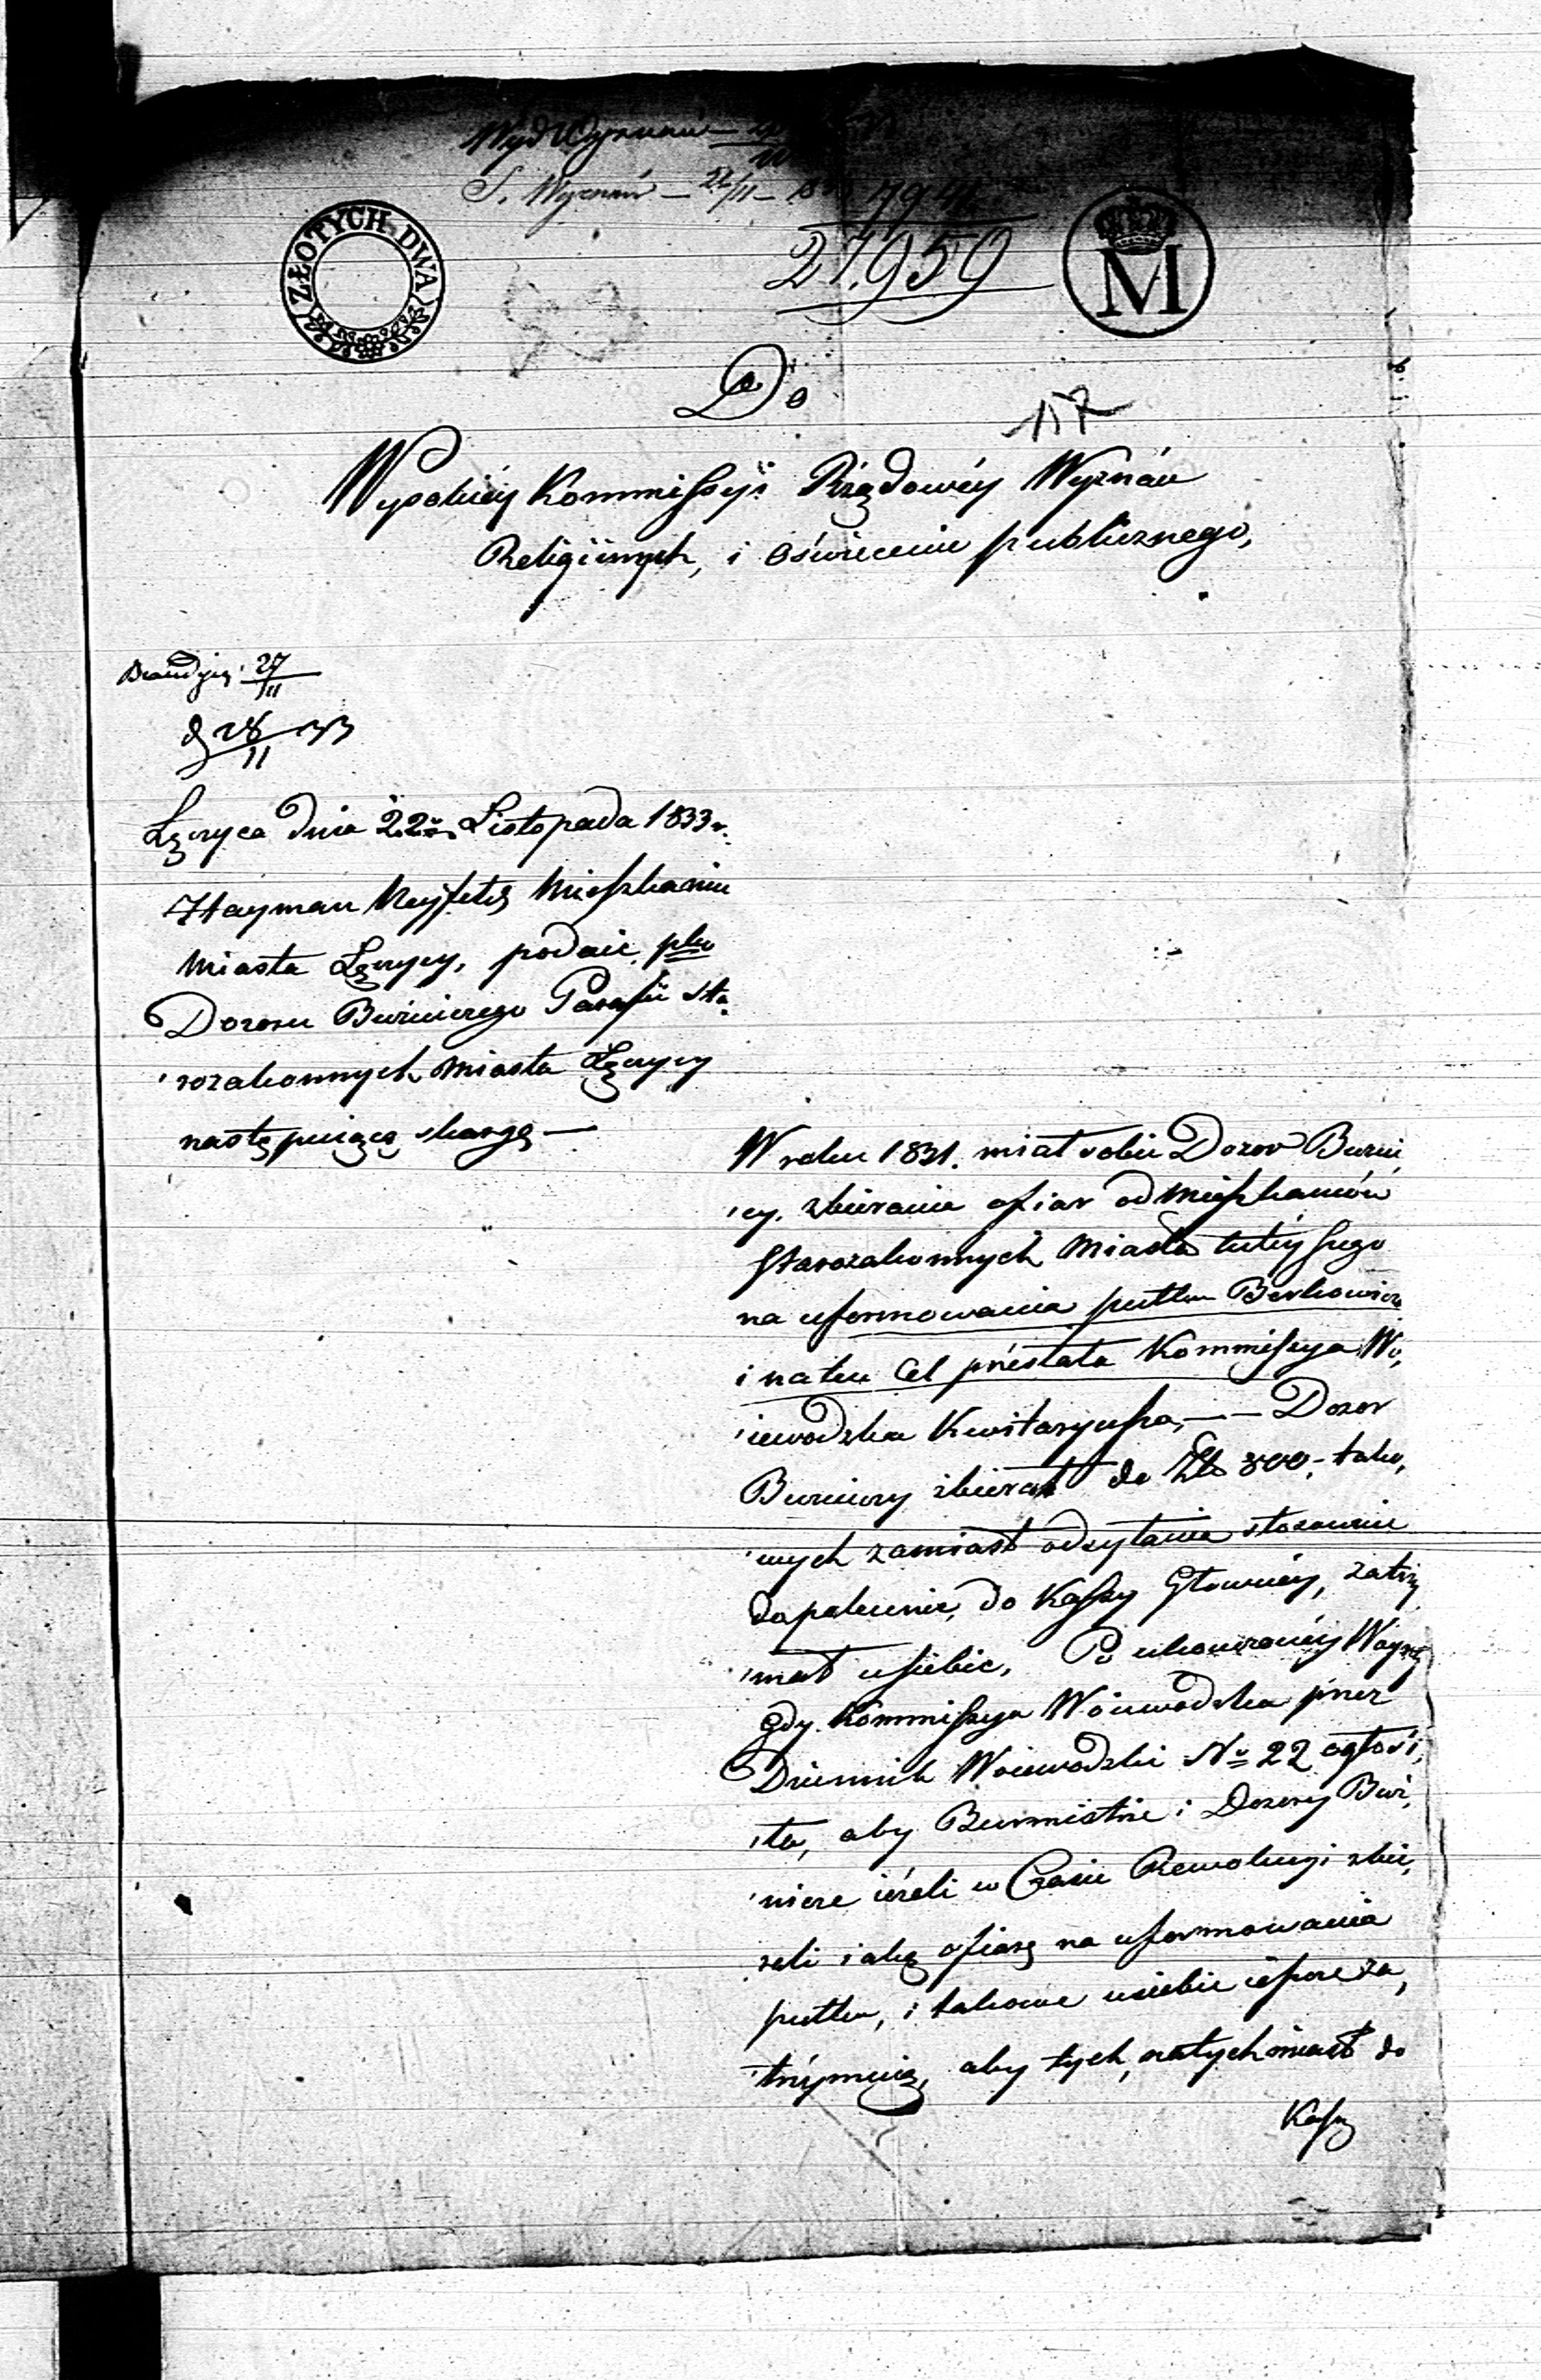 Wyd Wyznań
S. Wyznań — 22/11 —
ZŁOTYCH DWA
27.959
M
Do
117
Wysokiéy Kommissyi Rządowéy Wyznań
Religiinych, i Oświecenia publicznego,
27/11
d 28/11 33
Łęczyca dnia 22go Listopada 1833 r.
Hayman Neyfeld Mieszkaniec
Miasta Łęczycy, podaie plko
Dozoru Bużniczego Parafii sta,
rozakonnych Miasta Łęczycy
następuiącą skargę —
W roku 1831. miał sobie Dozor Bużni
cy. zbieranie ofiar od Mieszkańców
Starozakonnych Miasta tutéyszego
na uformowania pułku Berkowicza
i na ten Cel przesłała Kommissya Wo,
iewodzka Kwitaryusza, — — Dozor
Bużniczy zbierał do Złp 800; tako,
wych zamiast odsyłania stosownie
do polecenia, do Kassy Głównéy, zatrzy
mał u siebie, Po ukończonéy Woynie
gdy Kommissya Wóiewodzka przez
Dziennik Woiewodzki No 22 ogłosi,
ła, aby Burmistrze i Dozory Buż,
nicze ieżeli w Czasie Rewolucyi zbie,
rali iaką ofiarę na uformowania
pułku, i takowe u siebie ieszcze za,
trzymuią, aby tych natychmiast do
Kassy